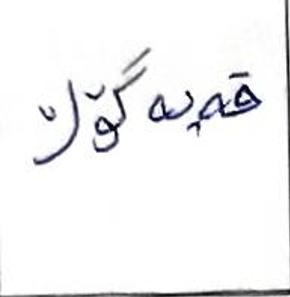 قەپەگۆڵ